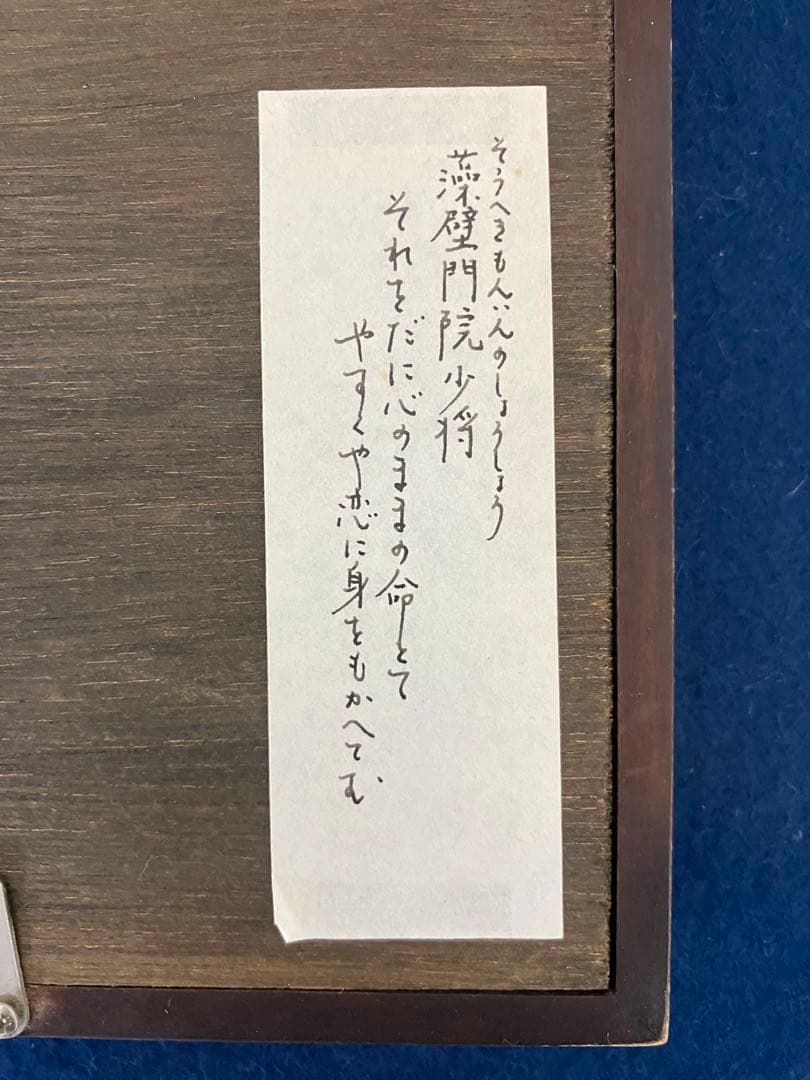 そうへきもんいんのしょうしょう
藻壁門院少将
それをだに心のままの命とて
やすくや恋に身をもかへてむ